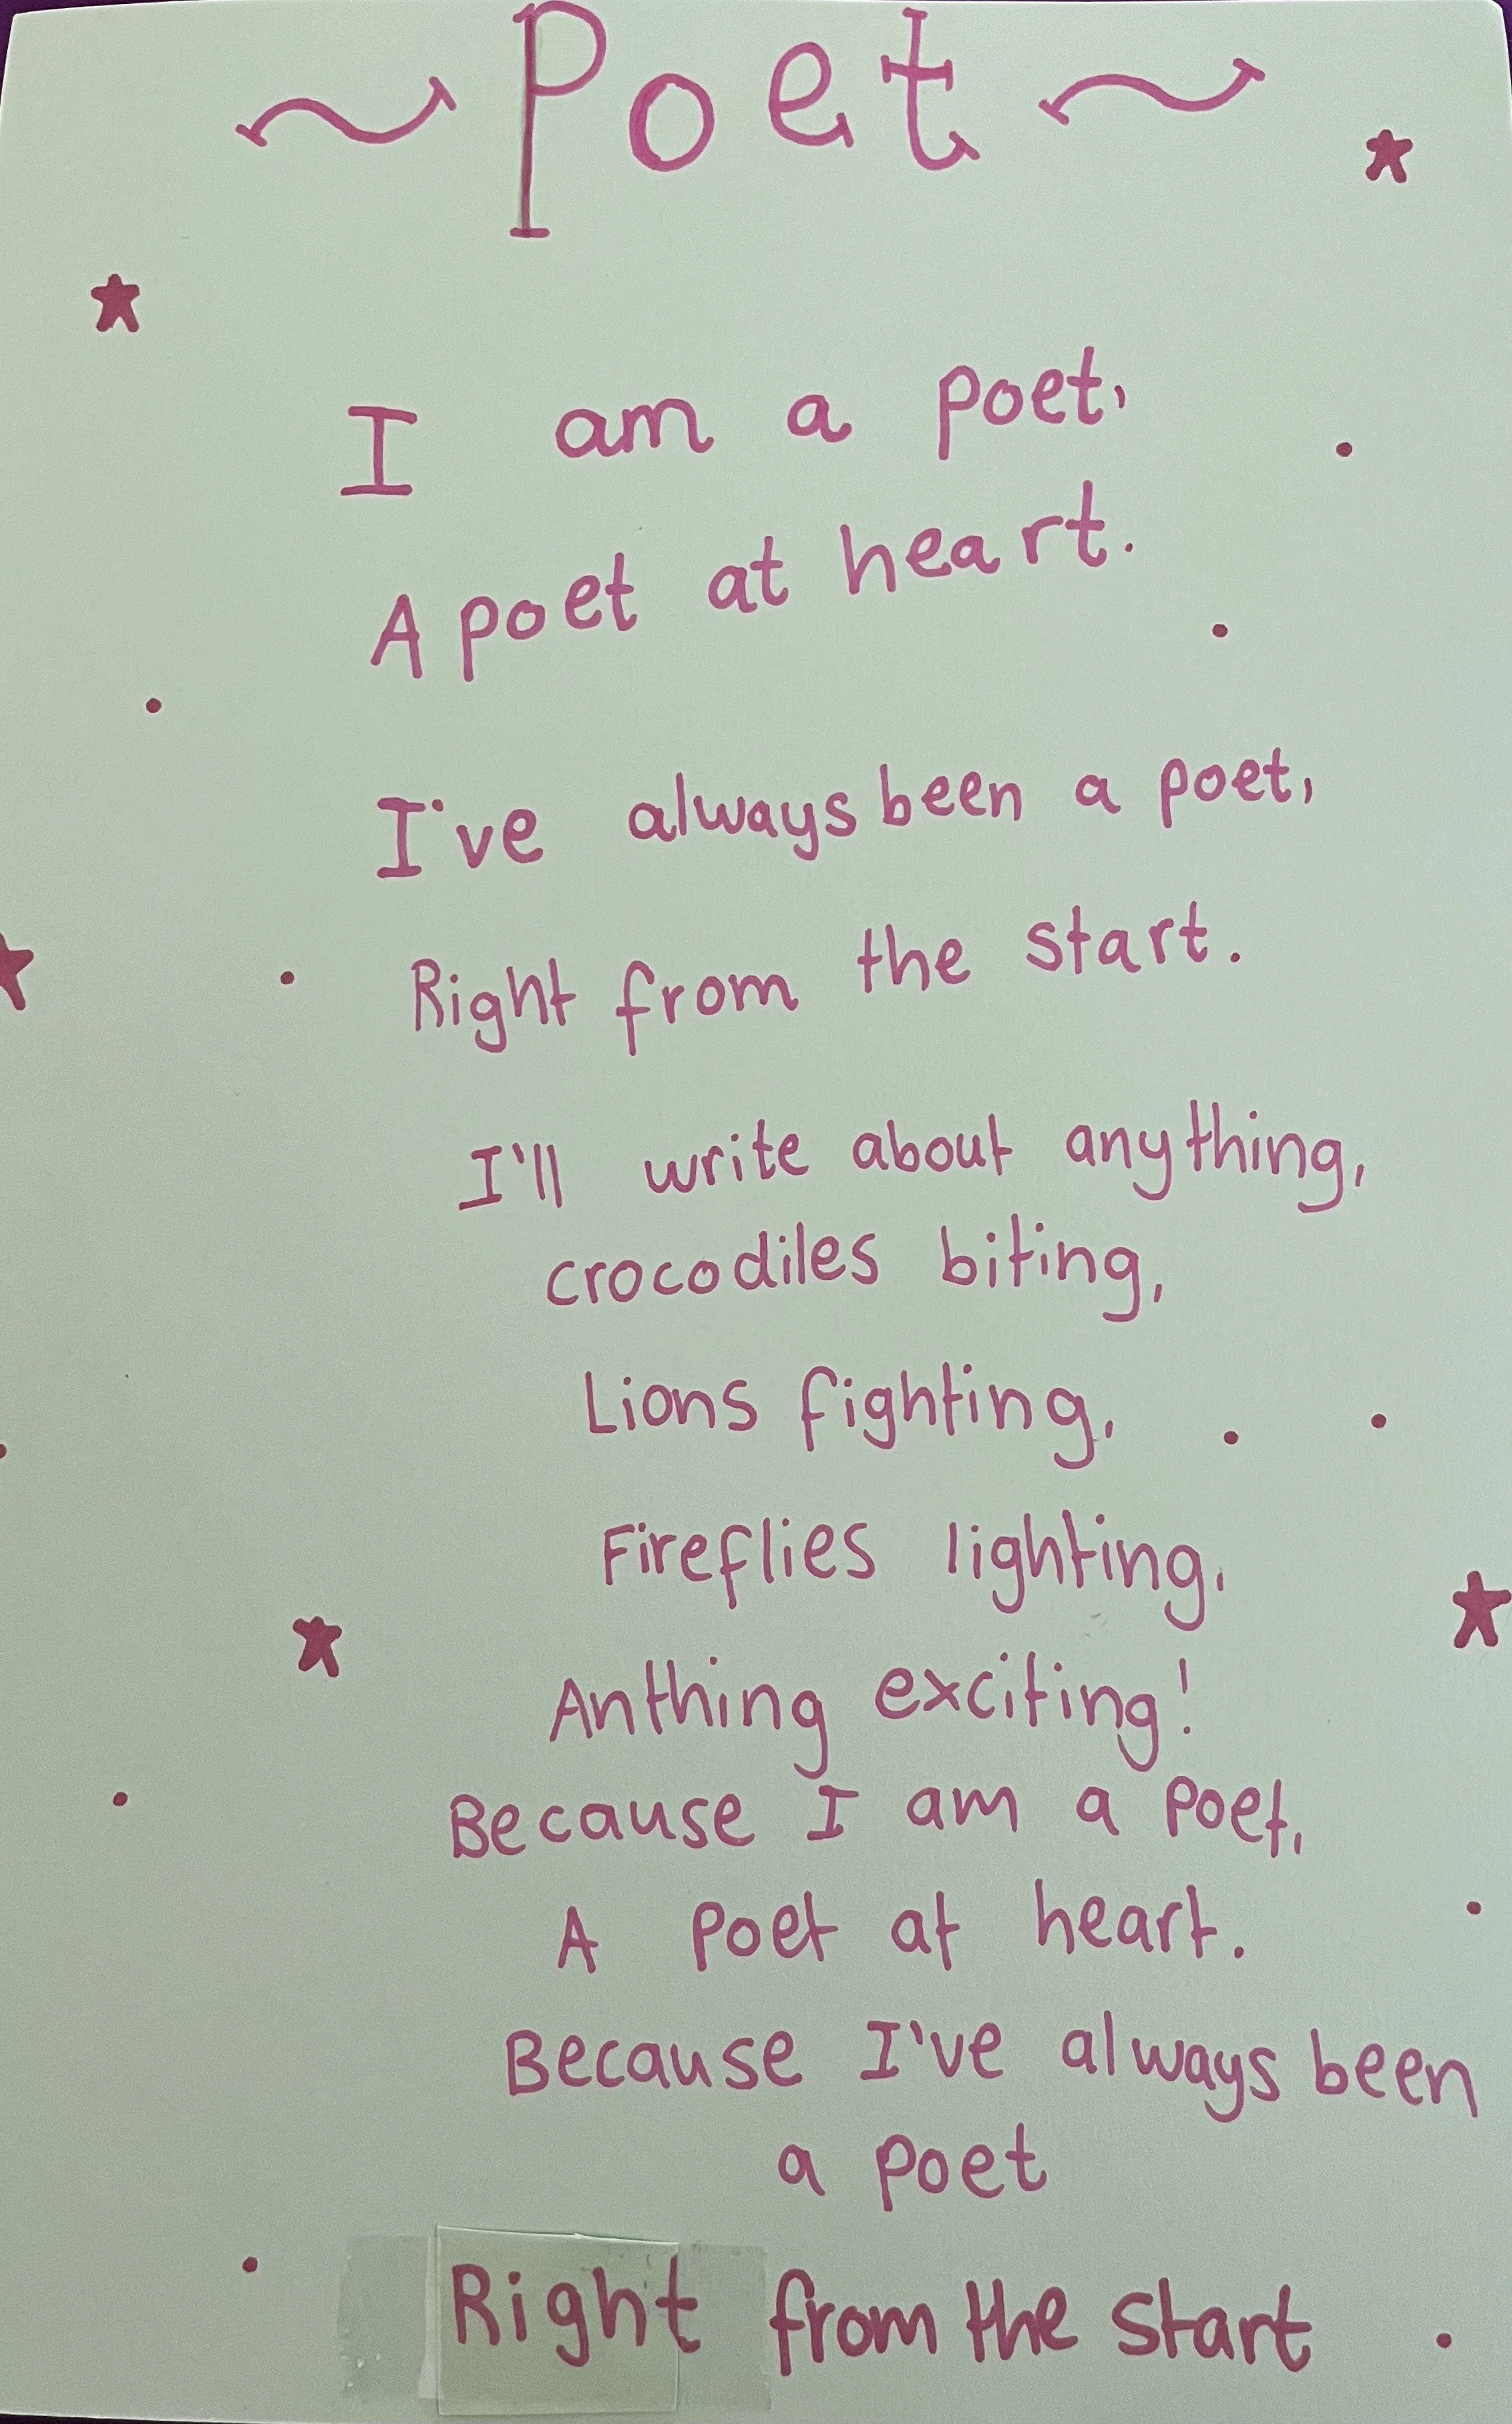 ~Poet~
I am a poet,
A poet at heart.
I've always been a poet,
Right from the start.
I'll write about anything,
crocodiles biting,
Lions fighting,
Fireflies lighting,
Anthing exciting!
Because I am a poet,
A poet at heart.
Because I've always been
a poet
Right from the start